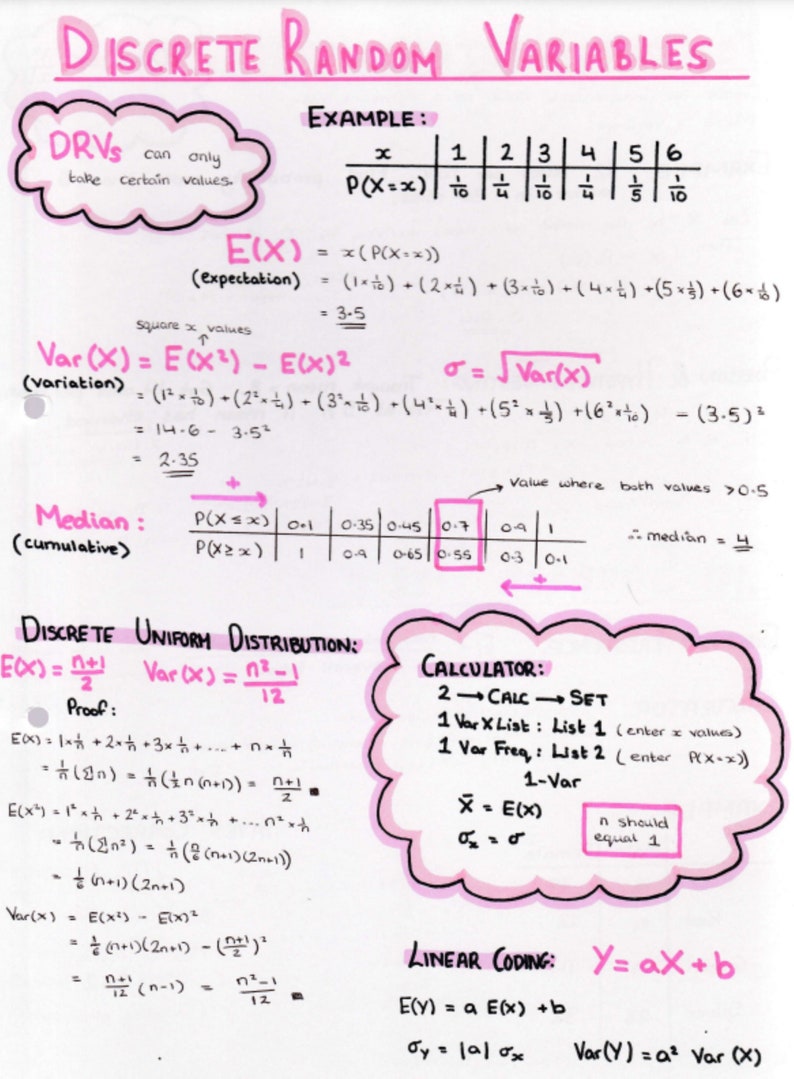 DISCRETE RANDOM VARIABLES
DRVs can only
take certain values.
EXAMPLE:
x | 1 | 2 | 3 | 4 | 5 | 6
P(X=x) | 1/10 | 1/4 | 1/10 | 1/4 | 1/5 | 1/10
E(X) = x(P(X=x))
(expectation) = (1×1/10) + (2×1/4) + (3×1/10) + (4×1/4) + (5×1/5) + (6×1/10)
= 3.5
square x values
Var(X) = E(X²) - E(X)²
σ = √Var(X)
(variation) = (1²×1/10) + (2²×1/4) + (3²×1/10) + (4²×1/4) + (5²×1/5) + (6²×1/10) - (3.5)²
= 14.6 - 3.5²
= 2.35
+
→ value where both values >0.5
Median: P(X≤x) | 0.1 | 0.35 | 0.45 | 0.7 | 0.9 | 1
(cumulative) P(X≥x) | 1 | 0.9 | 0.65 | 0.55 | 0.3 | 0.1
∴ median = 4
+
DISCRETE UNIFORM DISTRIBUTION:
E(X) = n+1/2 Var(X) = n²-1/12
Proof:
E(X) = 1×1/n + 2×1/n + 3×1/n + ... + n×1/n
= 1/n (∑n) = 1/n (1/2 n(n+1)) = n+1/2 ■
E(X²) = 1²×1/n + 2²×1/n + 3²×1/n + ... n²×1/n
= 1/n (∑n²) = 1/n (n/6 (n+1)(2n+1))
= 1/6 (n+1)(2n+1)
Var(X) = E(X²) - E(X)²
= 1/6 (n+1)(2n+1) - (n+1/2)²
= n+1/12 (n-1) = n²-1/12 ■
CALCULATOR:
2 → CALC → SET
1 Var XList : List 1 (enter x values)
1 Var Freq : List 2 (enter P(X=x))
1-Var
x̄ = E(X)
σx = σ
n should
equal 1
LINEAR CODING: Y = aX + b
E(Y) = a E(X) + b
σY = |a| σx Var(Y) = a² Var(X)